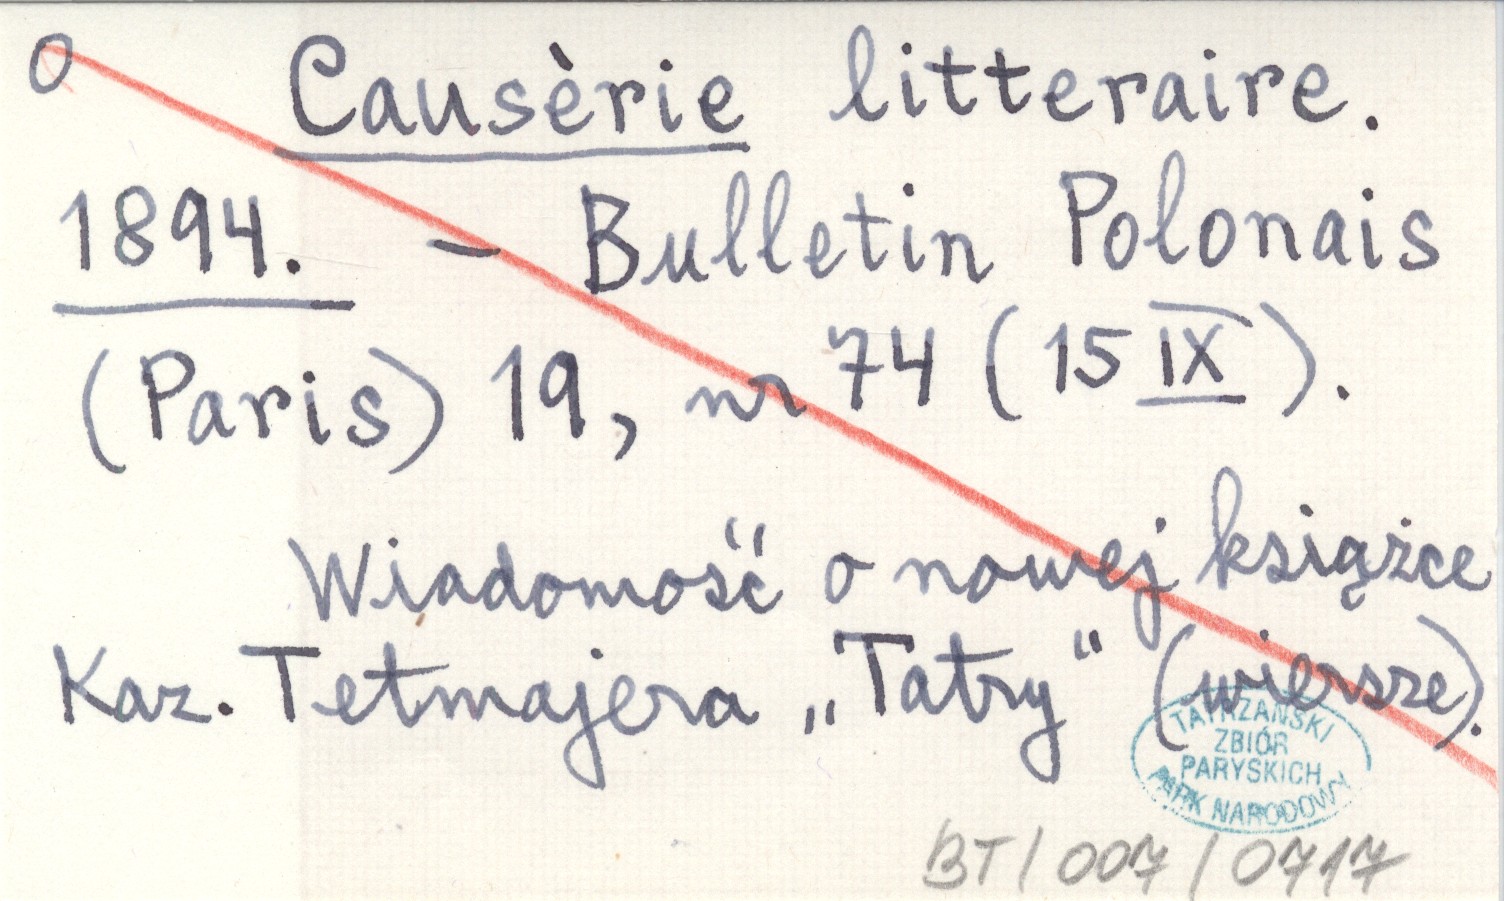 O Causèrie litteraire.
1894. - Bulletin Polonais
(Paris) 19, nr 74 (15 IX).
Wiadomość o nowej książce
Kaz. Tetmajera „Tatry" (wiersze).
TATRZAŃSKI
ZBIÓR
PARYSKICH
PARK NARODOWY
BT/007/0717